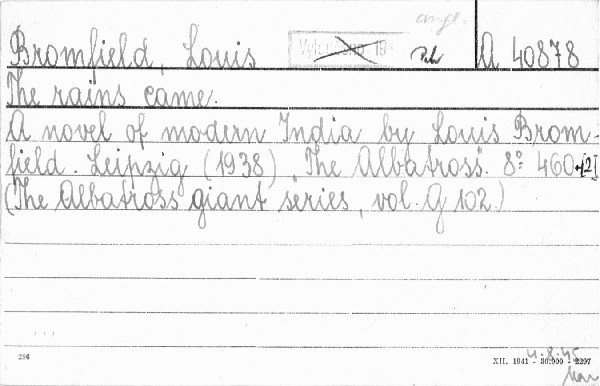 ange.
Bromfield, Louis
A 40878
The rains came.
A novel of modern India by Louis Brom-
field. Leipzig (1938) The Albatross. 8° 460+[2]
(The Albatross giant series, vol. G 102.)
286
XII. 1941 - 30.000 - 2297
4.8.45